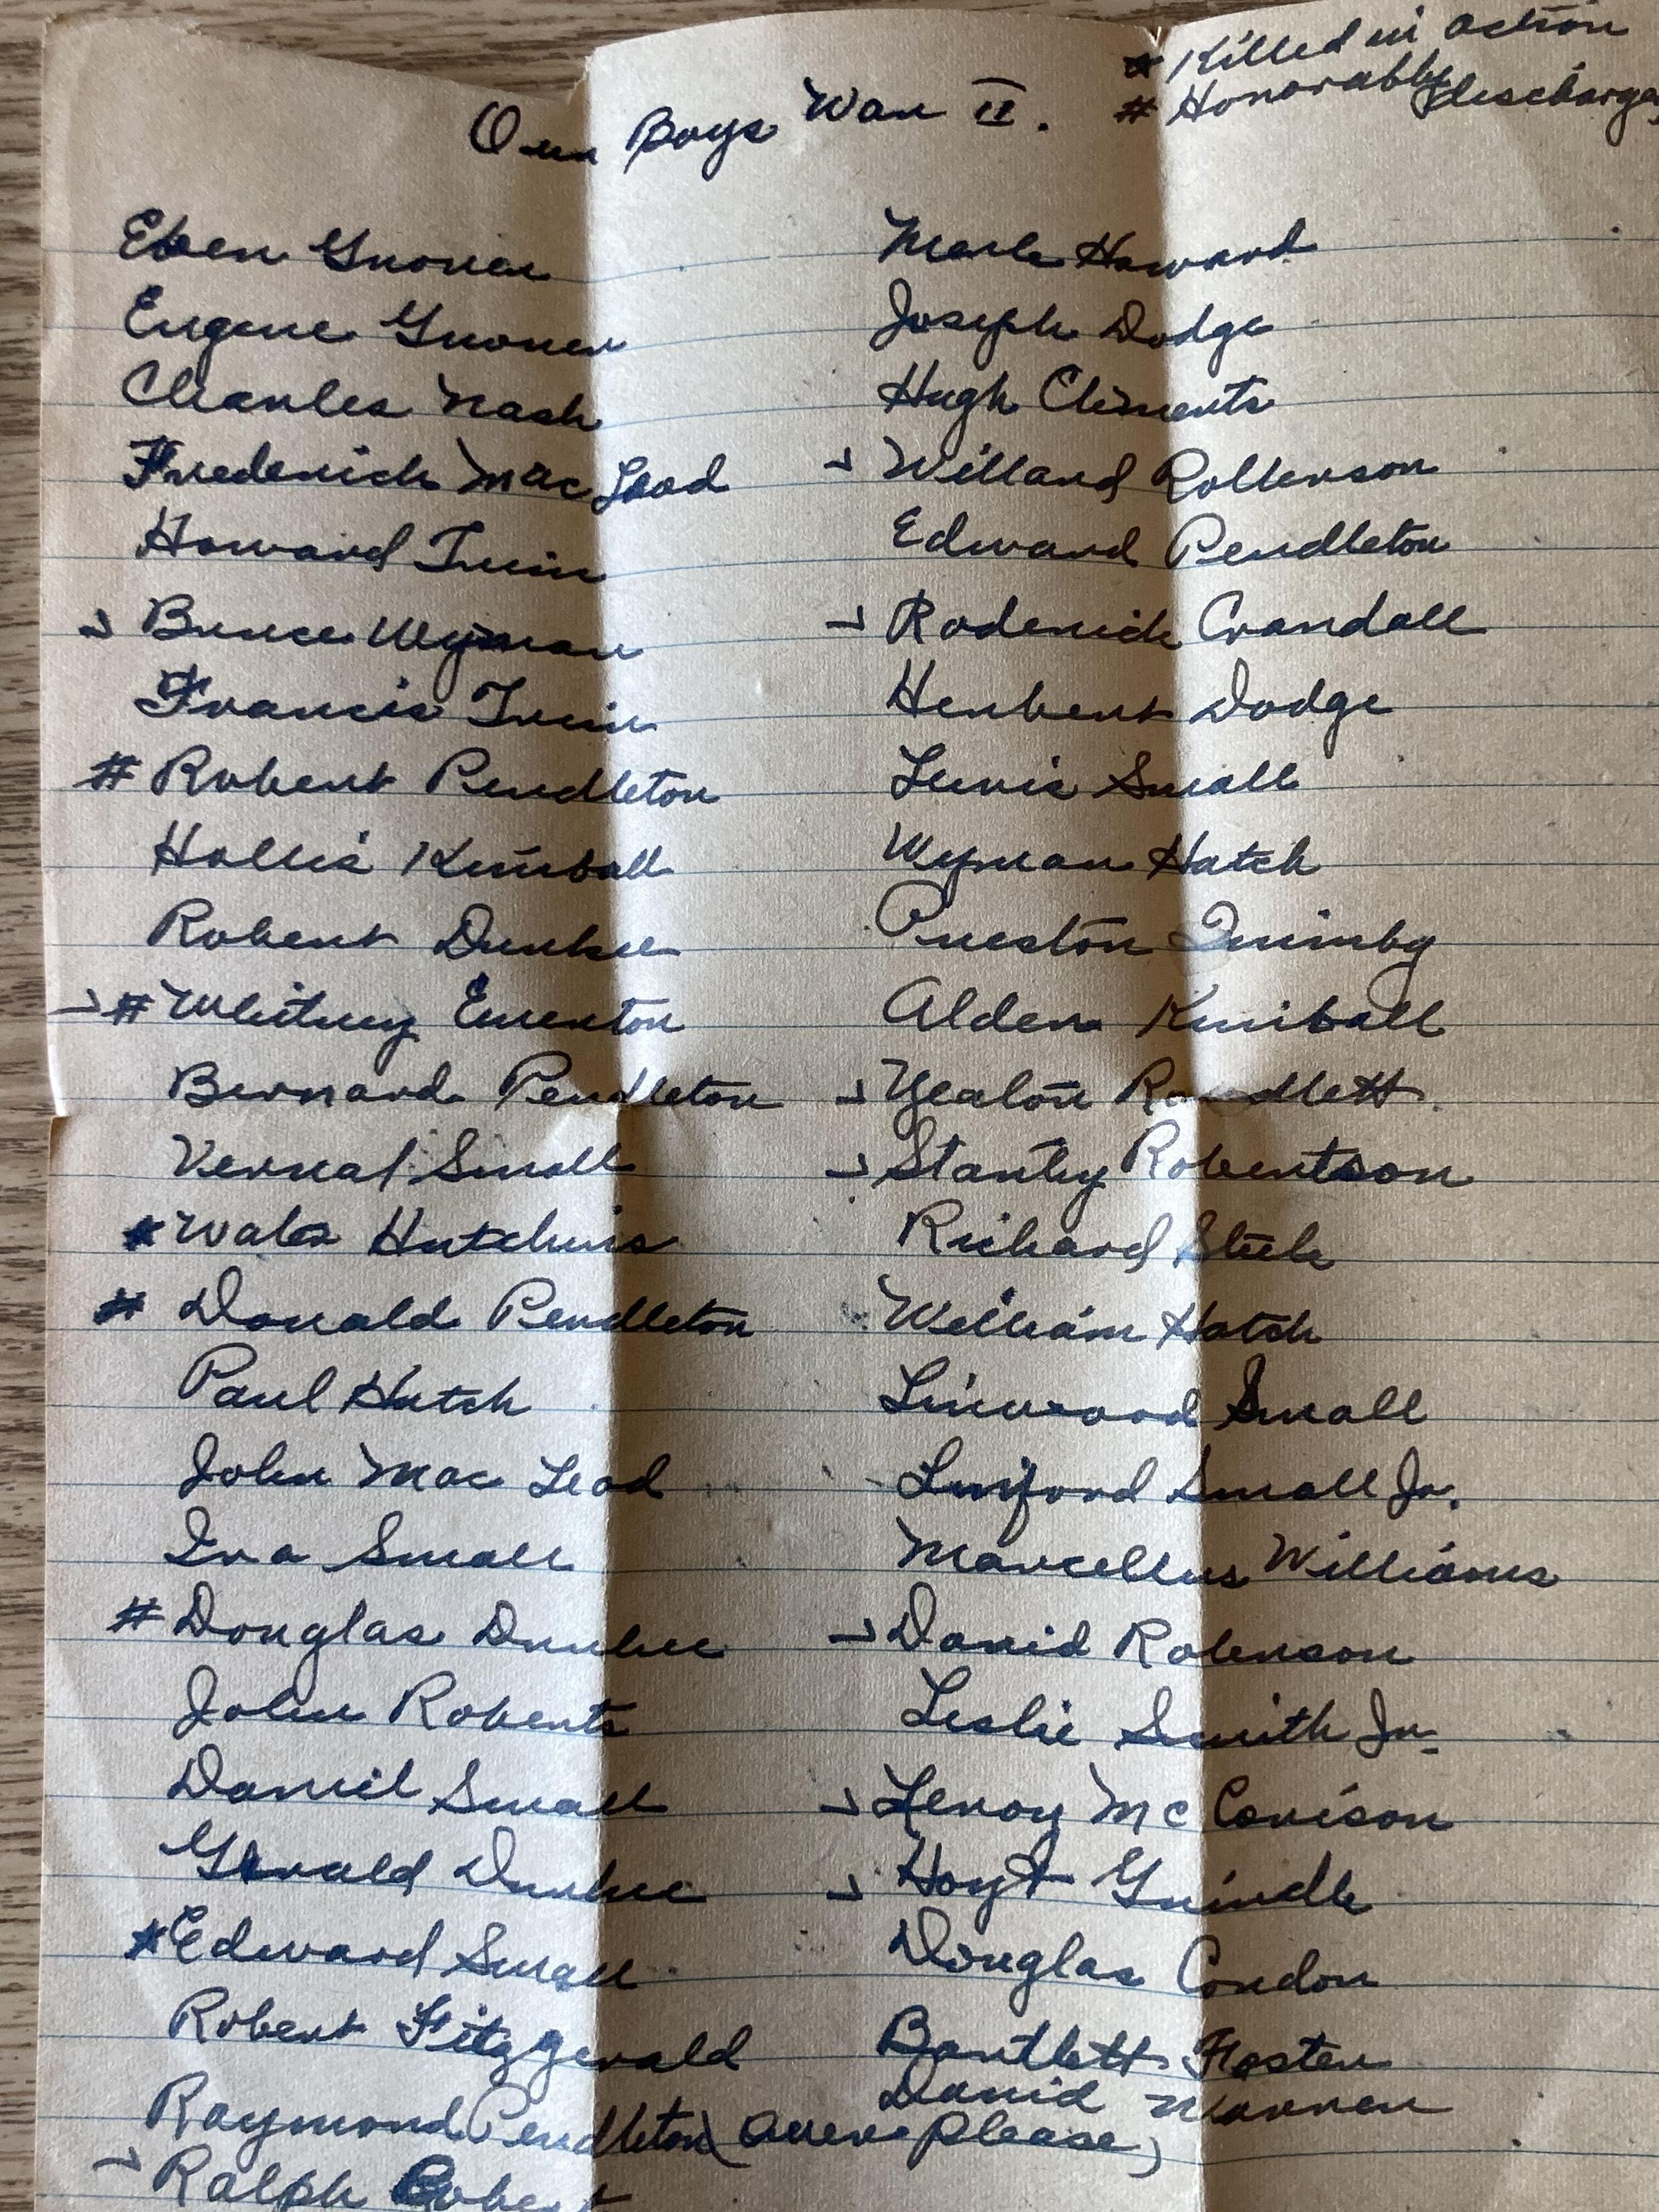 * Killed in action
# Honorably discharge
Our Boys War II.
Eben Grover
Eugene Grover
Charles Nash
Frederick MacLeod
Howard Irwin
→ Bruce Wyman
Francis Irwin
# Robert Pendleton
Hollis Kimball
Robert Dunbar
→ # Whitney Emerton
Bernard Pendleton
Vernal Small
* Hutchins
# Donald Pendleton
Paul Hatch
John Mac Leod
Ira Small
# Douglas Dunbar
John Roberts
Daniel Small
Gerald Dunbar
* Edward Small
Robert Fitzgerald
Raymond Pendleton (over please)
→ Ralph
Howard
Joseph Dodge
Hugh Clements
→ Willard Rollerson
Edward Pendleton
→ Roderick Crandall
Herbert Dodge
Lewis Small
Wyman Hatch
Preston Quimby
Alden Kimball
→ Yeaton Randlett
→ Stanley Robertson
Richard Steele
William Hatch
Linwood Small
Small Jr.
Marcellus Williams
→ David Roberson
Leslie Smith Jr.
→ Leroy Mc Corison
→ Hoyt Grindle
Douglas Condon
Bartlett Foster
David Warren